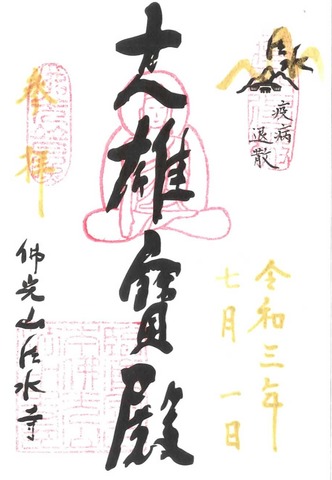 法水
疫病
退散
令和三年
七月一日
大雄寳殿
参拝
佛光山法水寺